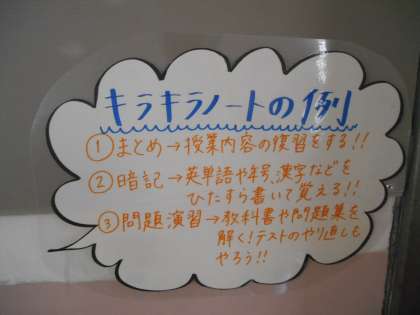 キラキラノートの例
①まとめ→授業内容の復習をする!!
②暗記→英単語や年号、漢字などを
ひたすら書いて覚える!!
③問題演習→教科書や問題集を
解く!テストのやり直しも
やろう!!